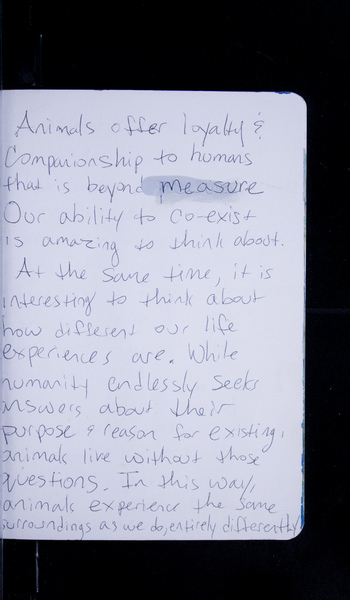 Animals offer loyalty &
Companionship to humans
that is beyond measure
Our ability to co-exist
is amazing to think about.
At the same time, it is
interesting to think about
how different our life
experiences are. While
humanity endlessly seeks
answers about their
purpose & reason for existing,
animals live without those
questions. In this way,
animals experience the same
surroundings as we do, entirely differently